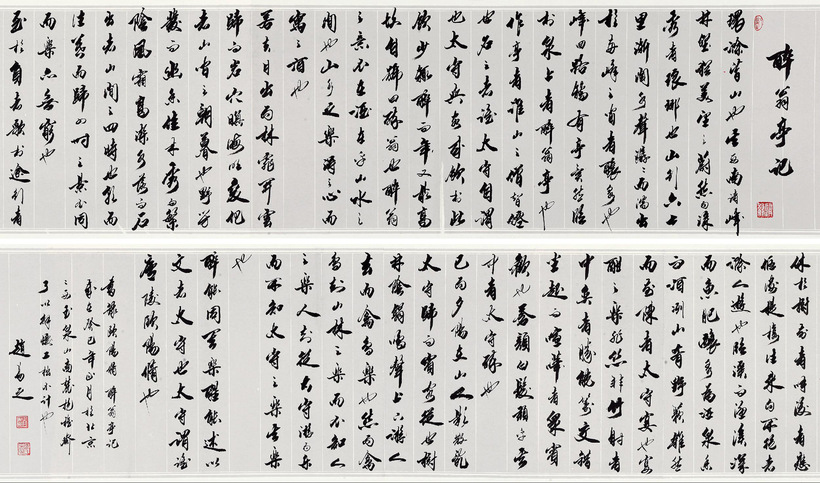 醉翁亭記
環滁皆山也其西南諸峰
林壑尤美望之蔚然而深
秀者琅琊也山行六七
里漸聞水聲潺潺而瀉出
於兩峰之間者釀泉也
峰回路轉有亭翼然臨
於泉上者醉翁亭也
作亭者誰山之僧智僊
也名之者誰太守自謂
也太守與客來飲於此
飲少輒醉而年又最高
故自號曰醉翁也醉翁
之意不在酒在乎山水之
間也山水之樂得之心而
寓之酒也
若夫日出而林霏開雲
歸而岩穴暝晦明變化
者山間之朝暮也野芳
發而幽香佳木秀而繁
陰風霜高潔水落而石
出者山間之四時也朝而
往暮而歸四時之景不同
而樂亦無窮也
至於負者歌於途行者
休於樹前者呼後者應
傴僂提攜往來而不絕者
滁人遊也臨溪而漁溪深
而魚肥釀泉為酒泉香
而酒洌山肴野蔌雜然
而前陳者太守宴也宴
酣之樂非絲非竹射者
中奕者勝觥籌交錯
坐起而喧嘩者衆賓
歡也蒼顏白髮頹乎其
中者太守醉也
已而夕陽在山人影散亂
太守歸而賓客從也樹
林陰翳鳴聲上下遊人
去而禽鳥樂也然而禽
鳥知山林之樂而不知人
之樂人知從太守遊而樂
而不知太守之樂其樂
也
醉能同其樂醒能述以
文者太守也太守謂誰
廬陵歐陽脩也
書錄歐陽脩醉翁亭記
歲在癸巳年正月於北京
之西玉泉山南麓
工拙不計也